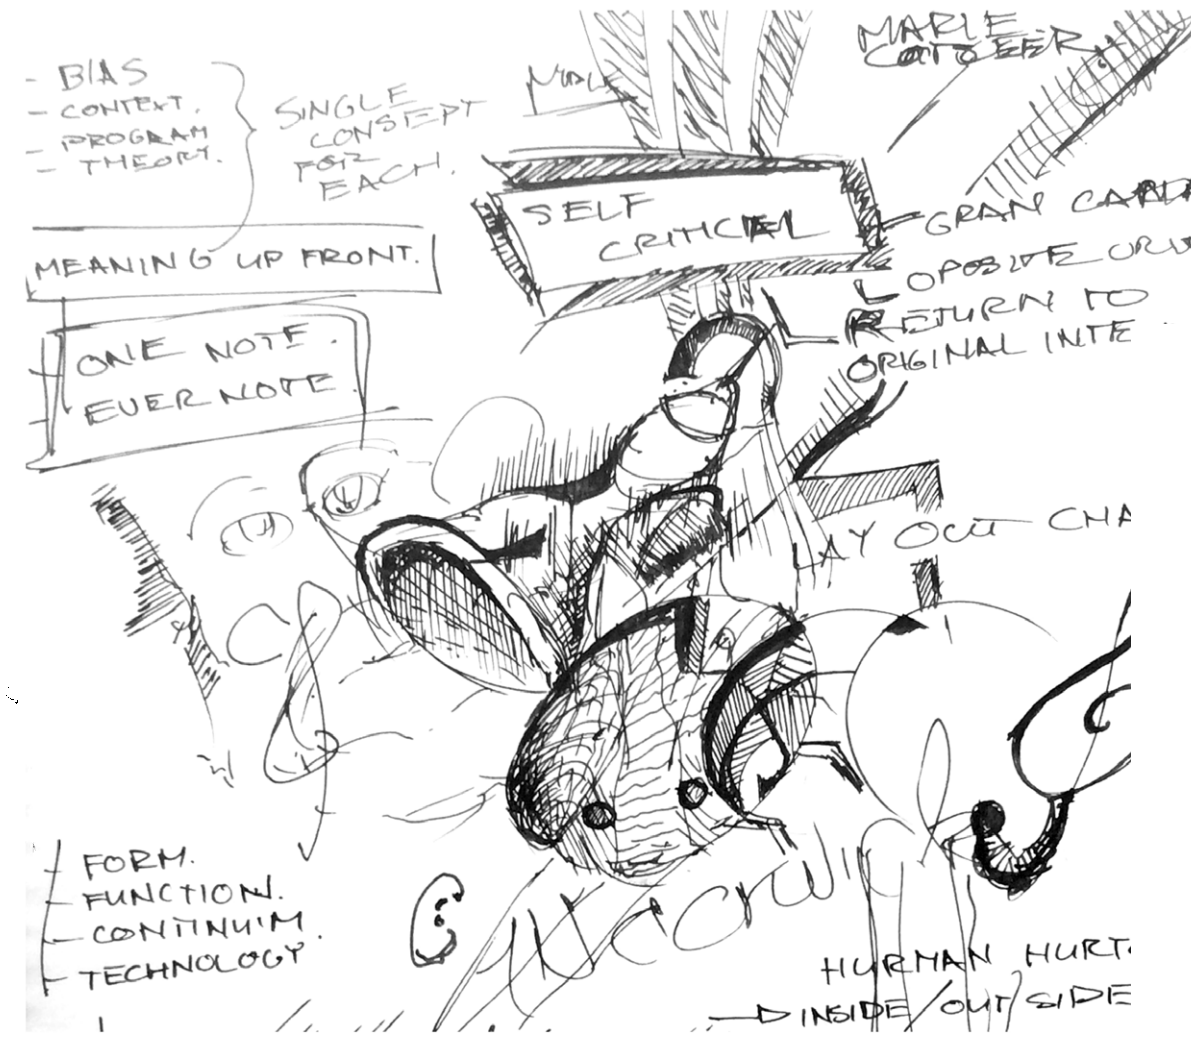 - BIAS
- CONTEXT.
- PROGRAM
- THEORY.
SINGLE
CONSEPT
FOR
EACH.
MEANING UP FRONT.
ONE NOTE.
EVERNOTE.
MARLE
SELF
CRITICAL
GRAN CARD
OPOSITE
RETURN TO
ORIGINAL INTE
LAY OUT CHA
FORM.
FUNCTION.
CONTINUIM.
TECHNOLOGY
HURMAN HURT.
INSIDE/OUT SIDE